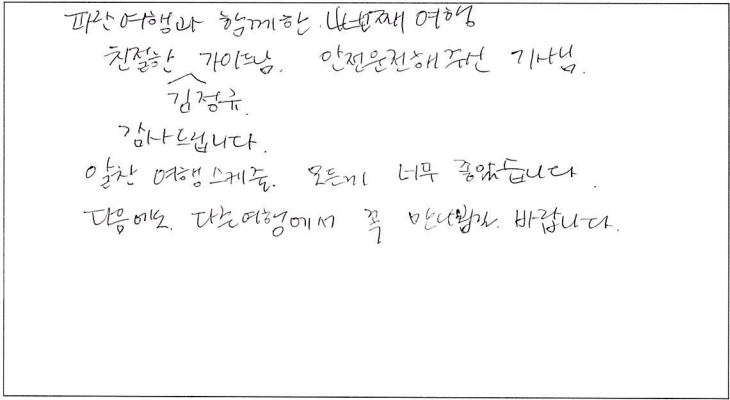 파란여행과 함께한 네번째 여행
친절한 가이드님. 안전운전해주신 기사님.
김정규.
감사드립니다.
알찬 여행스케줄. 모든게 너무 좋았습니다.
다음에도. 다른여행에서 꼭 만나뵙길. 바랍니다.